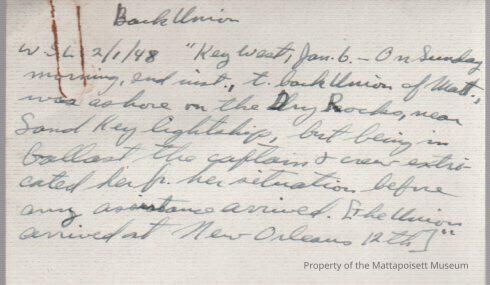 Bark Union
W.S.L. 2/1/48 "Key West, Jan. 6. - On Sunday
morning, 2nd inst., t. bark Union of Matt.,
was ashore on the Dry Rocks, near
Sand Key lightship, but being in
ballast the captain & crew extri-
cated her fr. her situation before
any assistance arrived. [The Union
arrived at New Orleans 12th]"
Property of the Mattapoisett Museum